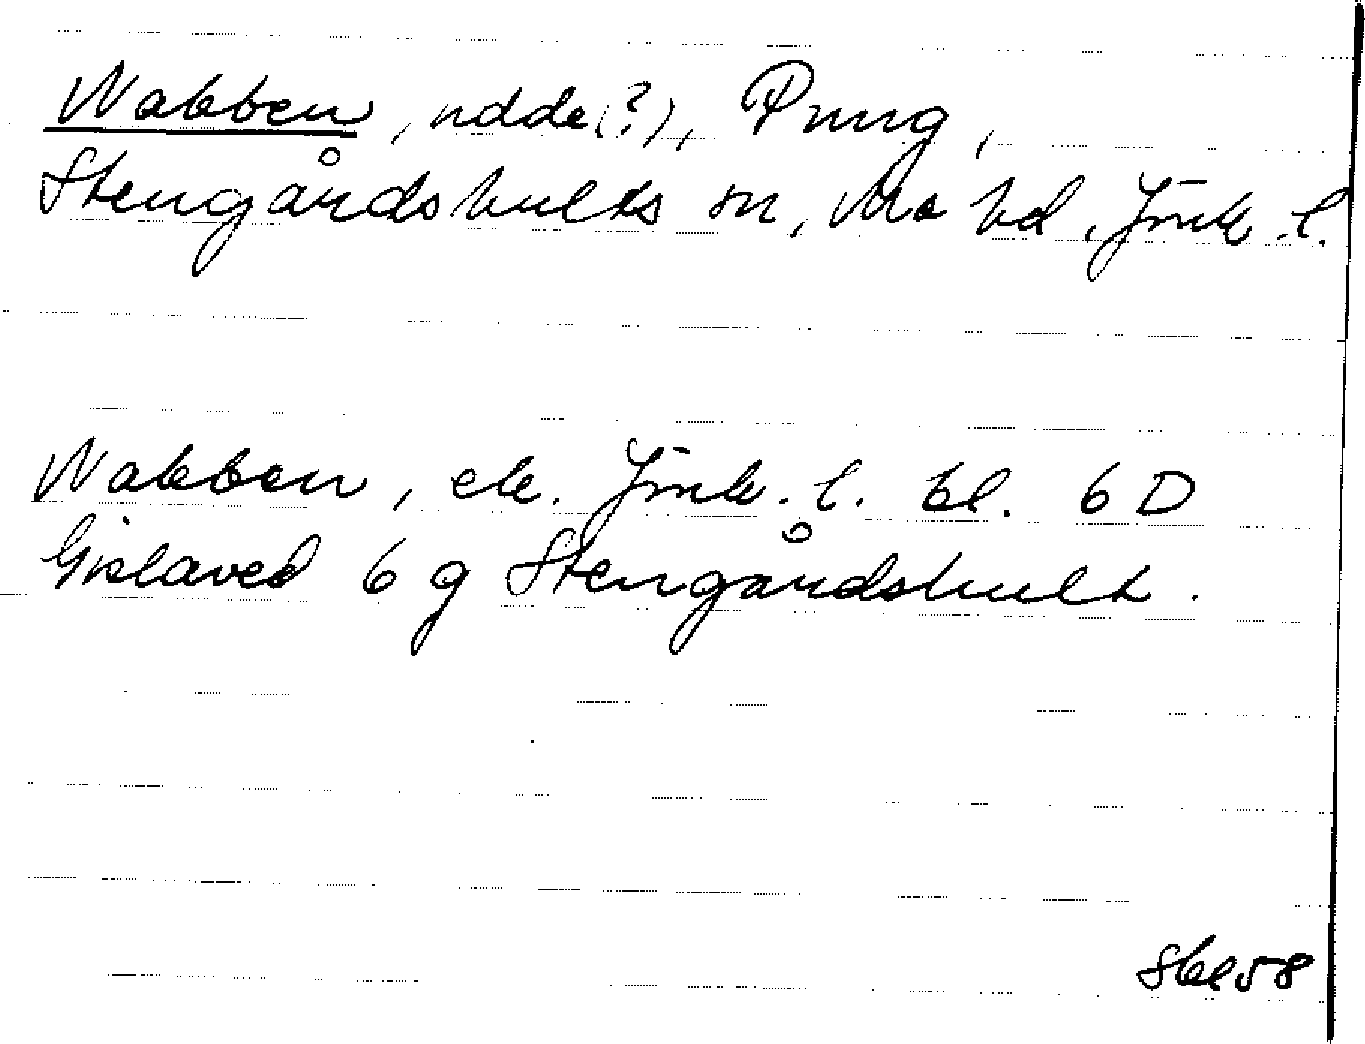 Nabben, udde(?),
Stengårdshults sn, Mo hd, Jönk. l.
Nabben, ek. Jönk. l. bl. 6 D
Gislaved 6 g Stengårdshult.